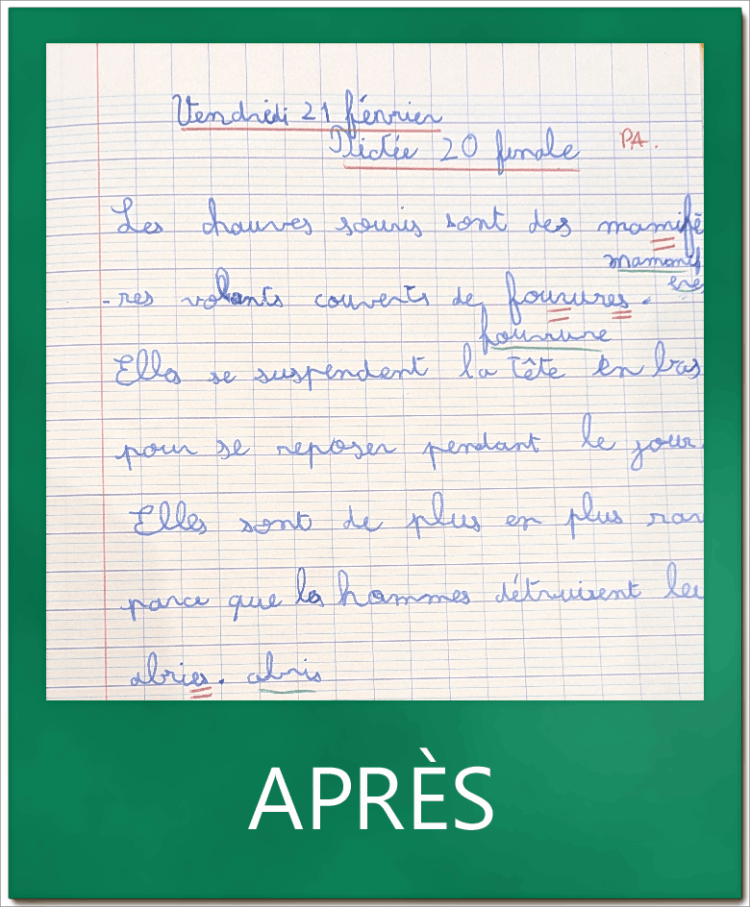 Vendredi 21 février
Dictée 20 finale PA.
Les chauves souris sont des mamifè
mammif
ères
-res volants couverts de fourures.
fourrure
Elles se suspendent la tête en bas
pour se reposer pendant le jour.
Elles sont de plus en plus rar
parce que les hommes détruisent leu
abries. abris
APRÈS